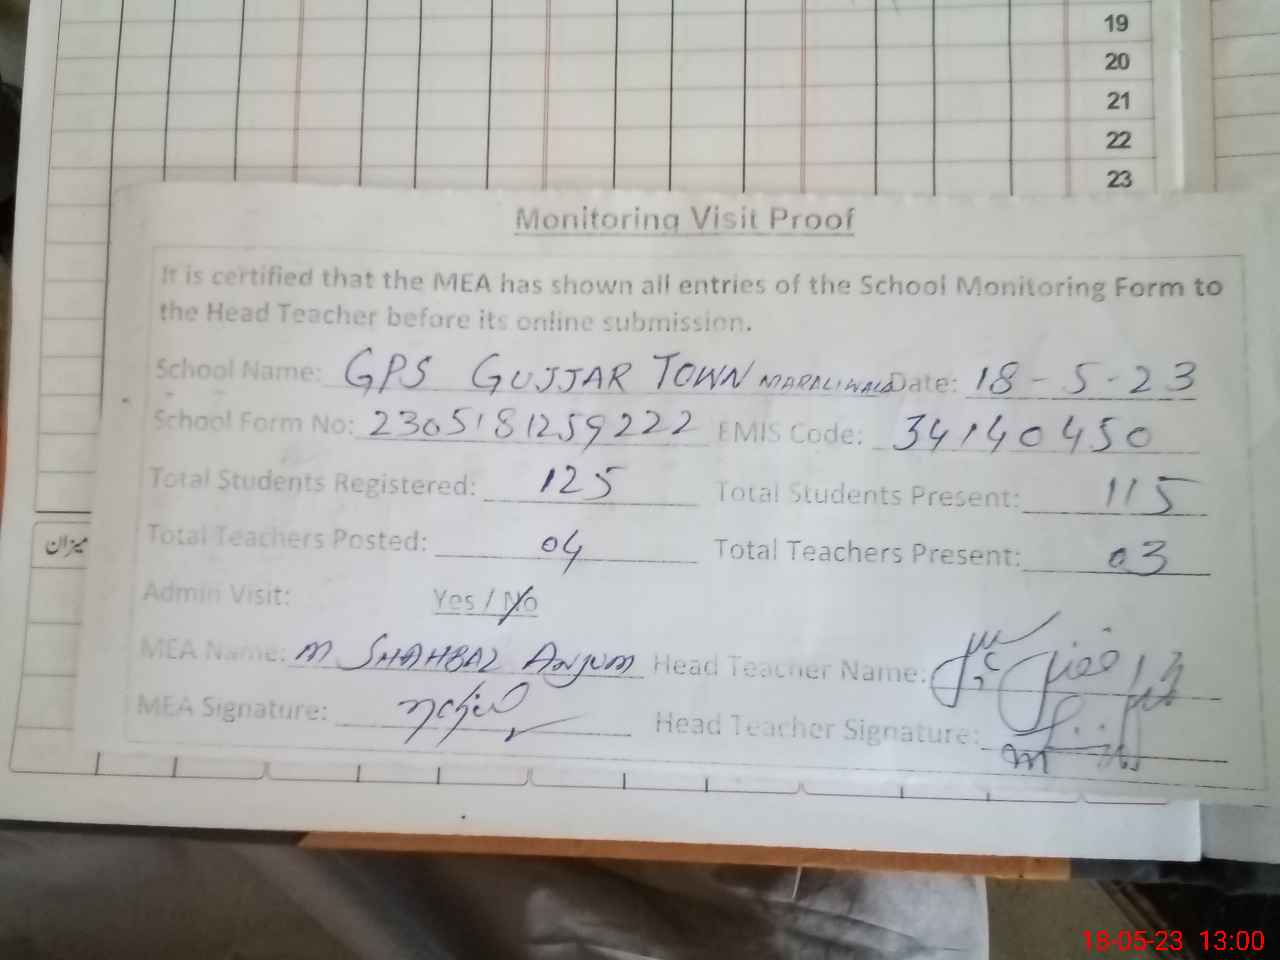 19
20
21
22
23
Monitoring Visit Proof
It is certified that the MEA has shown all entries of the School Monitoring Form to
the Head Teacher before its online submission.
School Name: GPS GUJJAR TOWN MARALIWALA Date: 18-5-23
School Form No: 2305181259222 EMIS Code: 34140450
Total Students Registered: 125 Total Students Present: 115
Total Teachers Posted: 04 Total Teachers Present: 03
میزان
Admin Visit: Yes / No
MEA Name: M SHAHBAZ ANJUM Head Teacher Name:
MEA Signature: Head Teacher Signature:
18-05-23 13:00